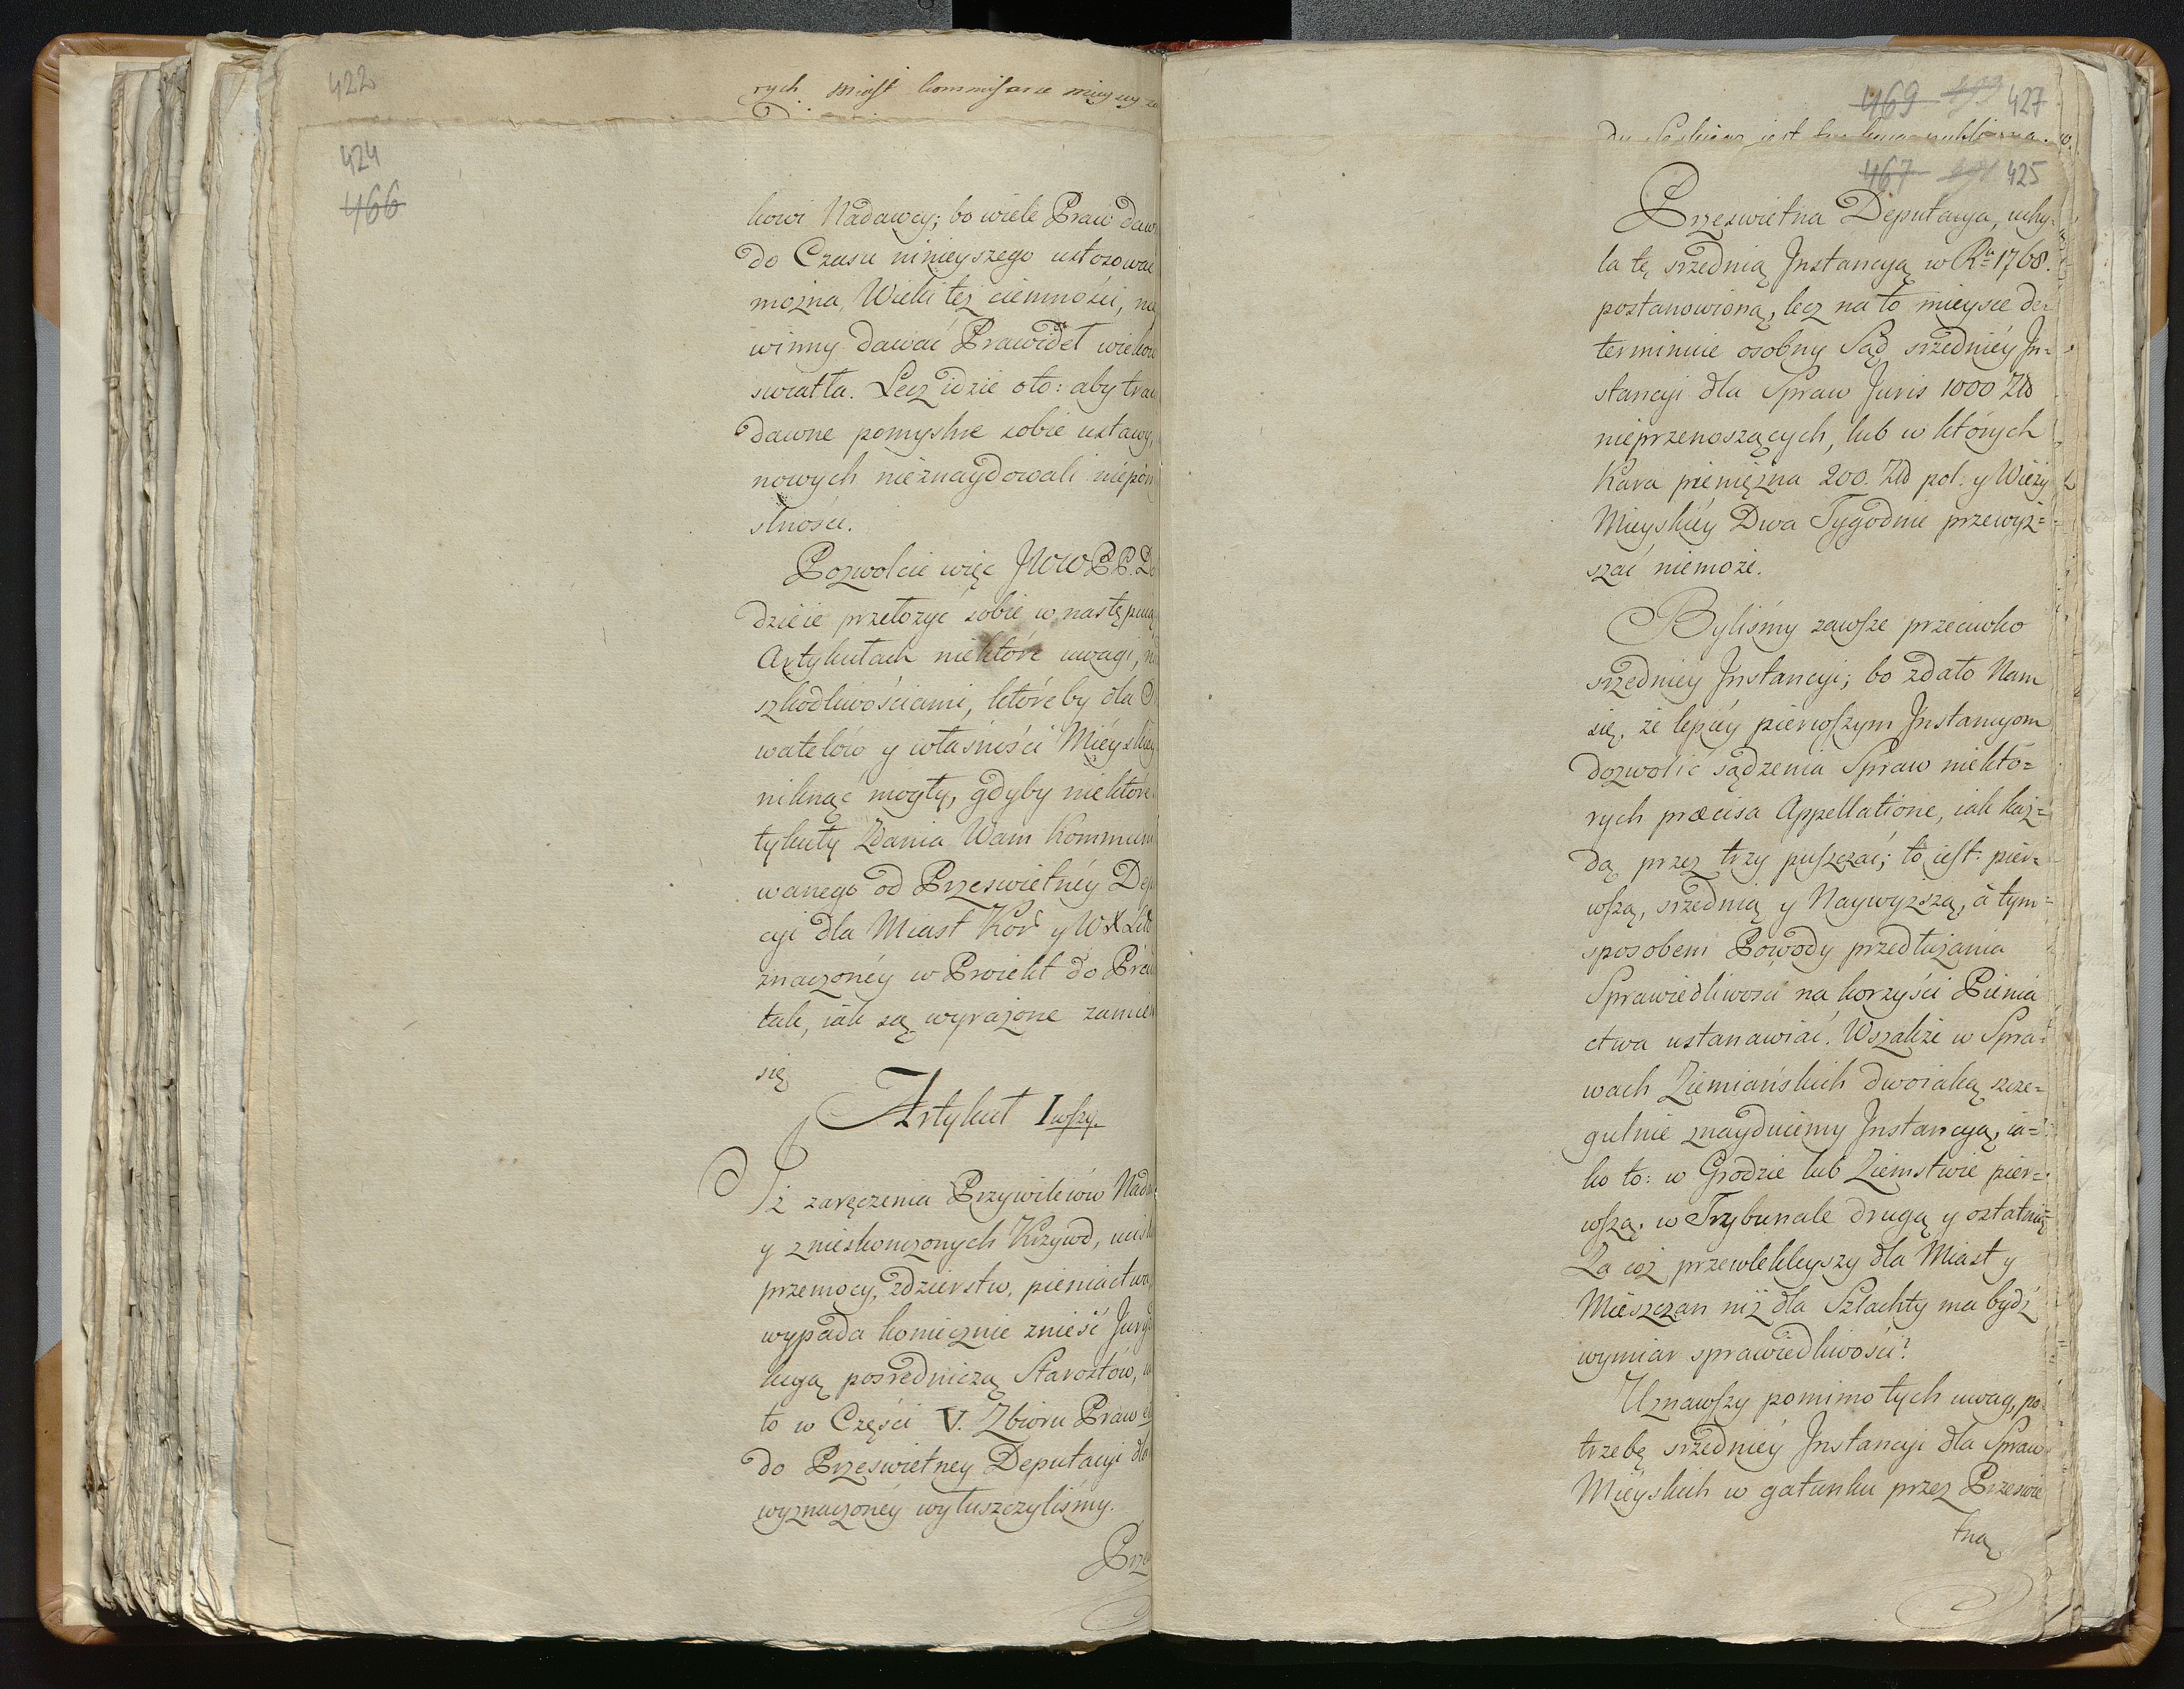 422
rych miast kommissarze
424
466
kowi Nadawcy; bo wiele Praw daw
do Czasu ninieyszego ustosować
można, Wieki też ciemności, nie
winny dawać Prawideł wiekow
swiatła. Lecz idzie oto: aby trac
dawne pomyslne sobie ustawy,
nowych nieznaydowali niepom
slności.
Pozwolcie więc JWW PP. De
dzieie przełożyć sobie w następuią
Artykułach niektóre uwagi, na
szkodliwościami, któreby dla O
watelów y własności Mieyskiey
niknąć mogły, gdyby niektóre
tykuły Zdania Wam kommuni
wanego od Przeswietnéy Dep
cyi dla Miast Kor y WXLit
znaczonéy w Proiekt do Praw
tak, iak są wyrażone zamien
się
Artykuł I wszy.
Iż zaręczenia Przywilewów Nada
y znieskonczonych Krzywd, ucisk
przemocy, zdzierstw, pieniactwa
wypada koniecznie znieść Jury
kcyą posredniczą Starostów,
to w Części V. Zbioru Praw
do Przeswietney Deputacyi dla
wyznaczonéy wyłuszczyliśmy.
Prze
469 427
467 425
Przeswietna Deputacya, uchy-
la tę srzednią Jnstancyą w Rku 1768.
postanowioną, lecz na to mieysce de-
terminuie osobny Sąd srzedniéy Jn=
stancyi dla Spraw Juris 1000 Złð
nieprzenoszących, lub w których
Kara pieniężna 200. Złð pol. y Wieży
Mieyskiéy Dwa Tygodnie przewyż=
szać niemoże.
Byliśmy zawsze przeciwko
srzedniey Jnstancyi; bo zdało Nam
się, że lepiéy pierwszym Jnstancyom
dozwolić sądzenia Spraw niektó=
rych præcisa Appellatione, iak każ=
dą przez trzy puszczać; to iest: pier=
wszą, srzednią y Naywyższą, á tym=
sposobem Powody przedłużania
Sprawiedliwości na korzyści Pienia
ctwa ustanawiać. Wszakże w Spra=
wach Ziemiańskich dwoiaką szcze=
gulnie znayduiemy Jnstancyą, ia=
ko to: w Grodzie lub Ziemstwie pier=
wszą, w Trybunale drugą y ostatnią
Za coż przewlekleyszy dla Miast y
Mieszczan niż dla Szlachty ma bydź
wymiar sprawiedliwości?
Uznawszy pomimo tych uwag, po
trzebę srzedniéy Jnstancyi dla Spraw
Mieyskich w gatunku przez Przeswie
tną